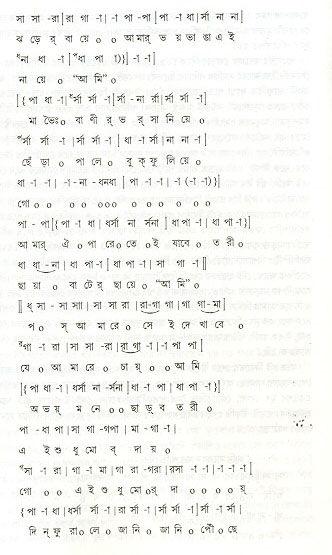 সা সা -রা|রা গা -া| -া পা -পা| পা -া ধা| র্সা না না|
ঝ ড়ে র্ বা য়ে ০ ০ আ মার্ ভ য় ভা ঙা এ ই
ধনা ধা -া | ধধা পা -া)} | -া -া |
না য়ে ০ "আ মি" ০
| { পা ধা -া | র্সা র্সা -া | র্সা -না র্রা | র্সা র্সা -া |
মা ভৈঃ ০ বা ণী র্ ভ র্ সা নি য়ে ০
র্সা র্সা -া | র্সা র্সা -া | ধা -া র্সা | না না -া |
ছেঁ ড়া ০ পা লে ০ বু ক্ ফু লি য়ে ০
ধা -া -া | -া -না -ধনধা | পা -া -া | -া (-া -া)}|
গো ০ ০ ০ ০ ০০০ ০ ০ ০ ০ ০ ০
পা - পা|{পা -া ধা | ধর্সা না র্সনা | ধাপা -া | ধাপা -া}|
আ মার্ ঐ ০ পা রে০তে ০ ই যাবে ০ ত রী ০
ধা ধা -না | ধা পা -া | ধাপা -া | সা গা -া ||
ছা য়া ০ ব টে র্ ছা য়ে ০ "আ মি" ০
|| ধ্ সা - সা সা | সা সা রা | রা-গা গা | গা গা-মা|
প ০ স্ আ মা রে ০ সে ই দে খা বে ০
গা -া রা | সা সা -রা | রা গা -া | -া পা পা |
যে ০ আ মা রে ০ চা য় ০ ০ আ মি
|{পা ধা -া | ধর্সা না -র্সনা | ধা -া পা | ধাপা -া}|
অ ভ য় ম নে ০ ০ ছা ড়্ ব ত রী ০
পা -ধা পা | সা গা -গপা | মা -গা -া |
এ ই শু ধু মো ব্ দা য় ০
সা -া রা | গা -া মা | গা রা -গরা |রসা -া -া | -া -া -া |
গো ০ ০ এ ই শু ধু মো০র্ দা ০ ০ ০ ০ য়্
{পা -া ধা | ধর্সা র্সা -া | র্সা র্সা -া | র্সা র্সা -া | র্সা -া র্সা |
দি ন্ ফু রা০লে ০ জা নি ০ জা নি ০ পৌঁ ০ ছে